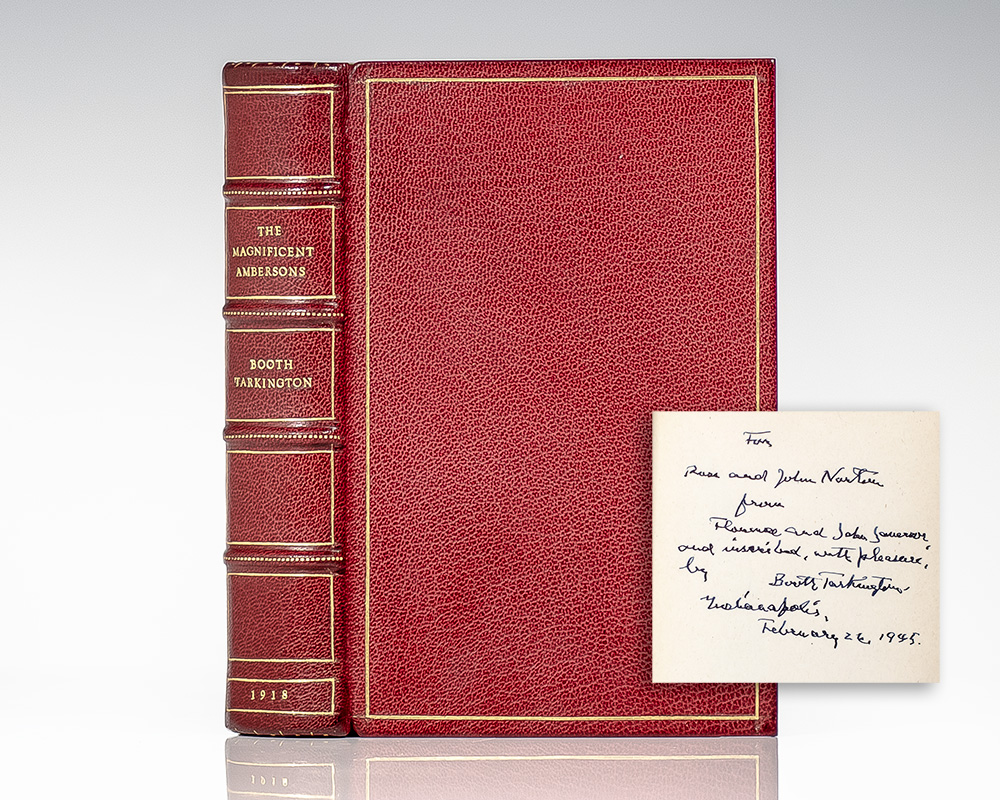 THE
MAGNIFICENT
AMBERSONS
BOOTH
TARKINGTON
1918
For
and John Norton
from
Florence and John
and inscribed, with pleasure,
by
Booth Tarkington.
Indianapolis,
February 26, 1945.